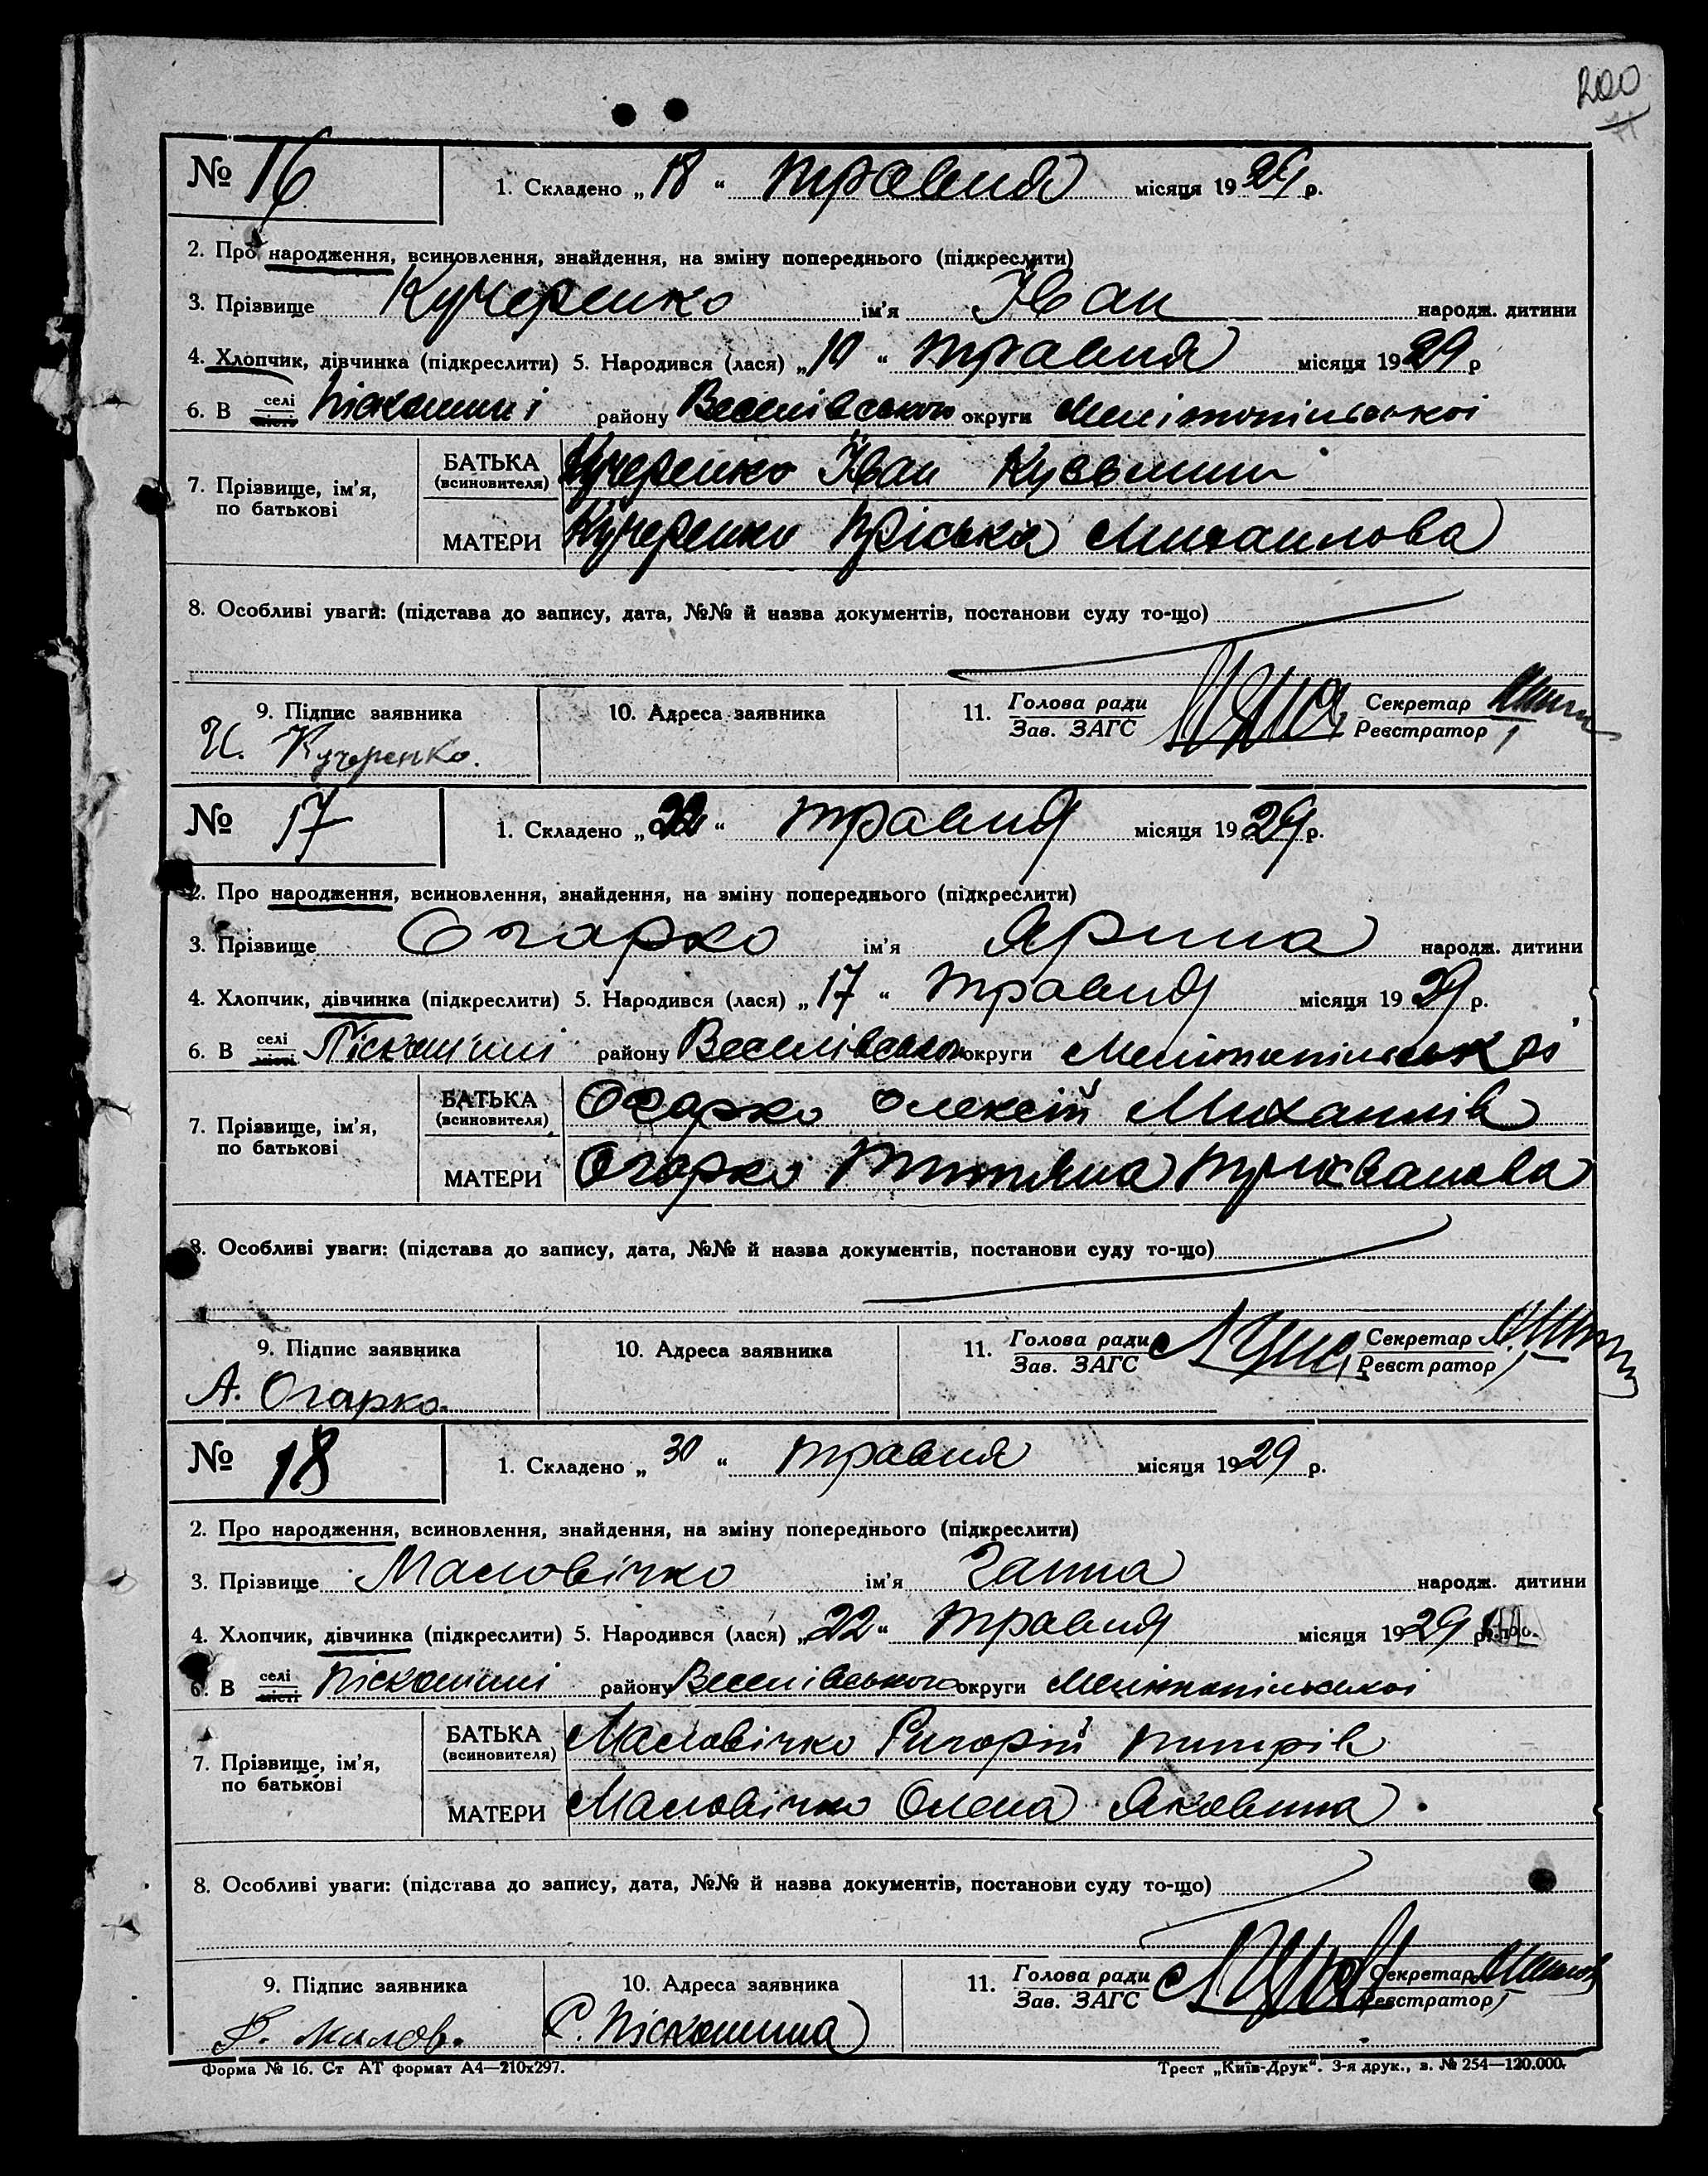 200
№ 16 1. Складено „18“ травня місяця 1929 р.
2. Про народження, всиновлення, знайдення, на зміну попереднього (підкреслити)
3. Прізвище Кучеренко ім'я Іван народж. дитини
4. Хлопчик, дівчинка (підкреслити) 5. Народився (лася) „10“ травня місяця 1929 р
6. В селі місті Піскошині району Веселівського округи Мелітопільської
7. Прізвище, ім'я, по батькові
БАТЬКА (всиновителя) Кучеренко Іван Кузьмин
МАТЕРИ Кучеренко Пріська Михаилова
8. Особливі уваги: (підстава до запису, дата, №№ й назва документів, постанови суду то-що)
9. Підпис заявника 10. Адреса заявника 11. Голова ради Зав. ЗАГС Секретар Реєстратор
И. Кучеренко.
№ 17 1. Складено „22“ травня місяця 1929 р.
2. Про народження, всиновлення, знайдення, на зміну попереднього (підкреслити)
3. Прізвище Огарко ім'я Ярина народж. дитини
4. Хлопчик, дівчинка (підкреслити) 5. Народився (лася) „17“ травня місяця 1929 р.
6. В селі місті Піскошині району Веселівського округи Мелітопільської
7. Прізвище, ім'я, по батькові
БАТЬКА (всиновителя) Огарко Олексій Михаилів
МАТЕРИ Огарко
8. Особливі уваги: (підстава до запису, дата, №№ й назва документів, постанови суду то-що)
9. Підпис заявника 10. Адреса заявника 11. Голова ради Зав. ЗАГС Секретар Реєстратор
А. Огарко.
№ 18 1. Складено „30“ травня місяця 1929 р.
2. Про народження, всиновлення, знайдення, на зміну попереднього (підкреслити)
3. Прізвище Масловічко ім'я Ганна народж. дитини
4. Хлопчик, дівчинка (підкреслити) 5. Народився (лася) „22“ травня місяця 1929 р.
6. В селі місті Піскошині району Веселівського округи Мелітопільської
7. Прізвище, ім'я, по батькові
БАТЬКА (всиновителя) Масловічко Григорій
МАТЕРИ Масловічко Олена Яковина
8. Особливі уваги: (підстава до запису, дата, №№ й назва документів, постанови суду то-що)
9. Підпис заявника 10. Адреса заявника 11. Голова ради Зав. ЗАГС Секретар Реєстратор
С. Піскошина
Форма № 16. Ст АТ формат А4—210х297. Трест „Київ-Друк“. 3-я друк., з. № 254—120.000.